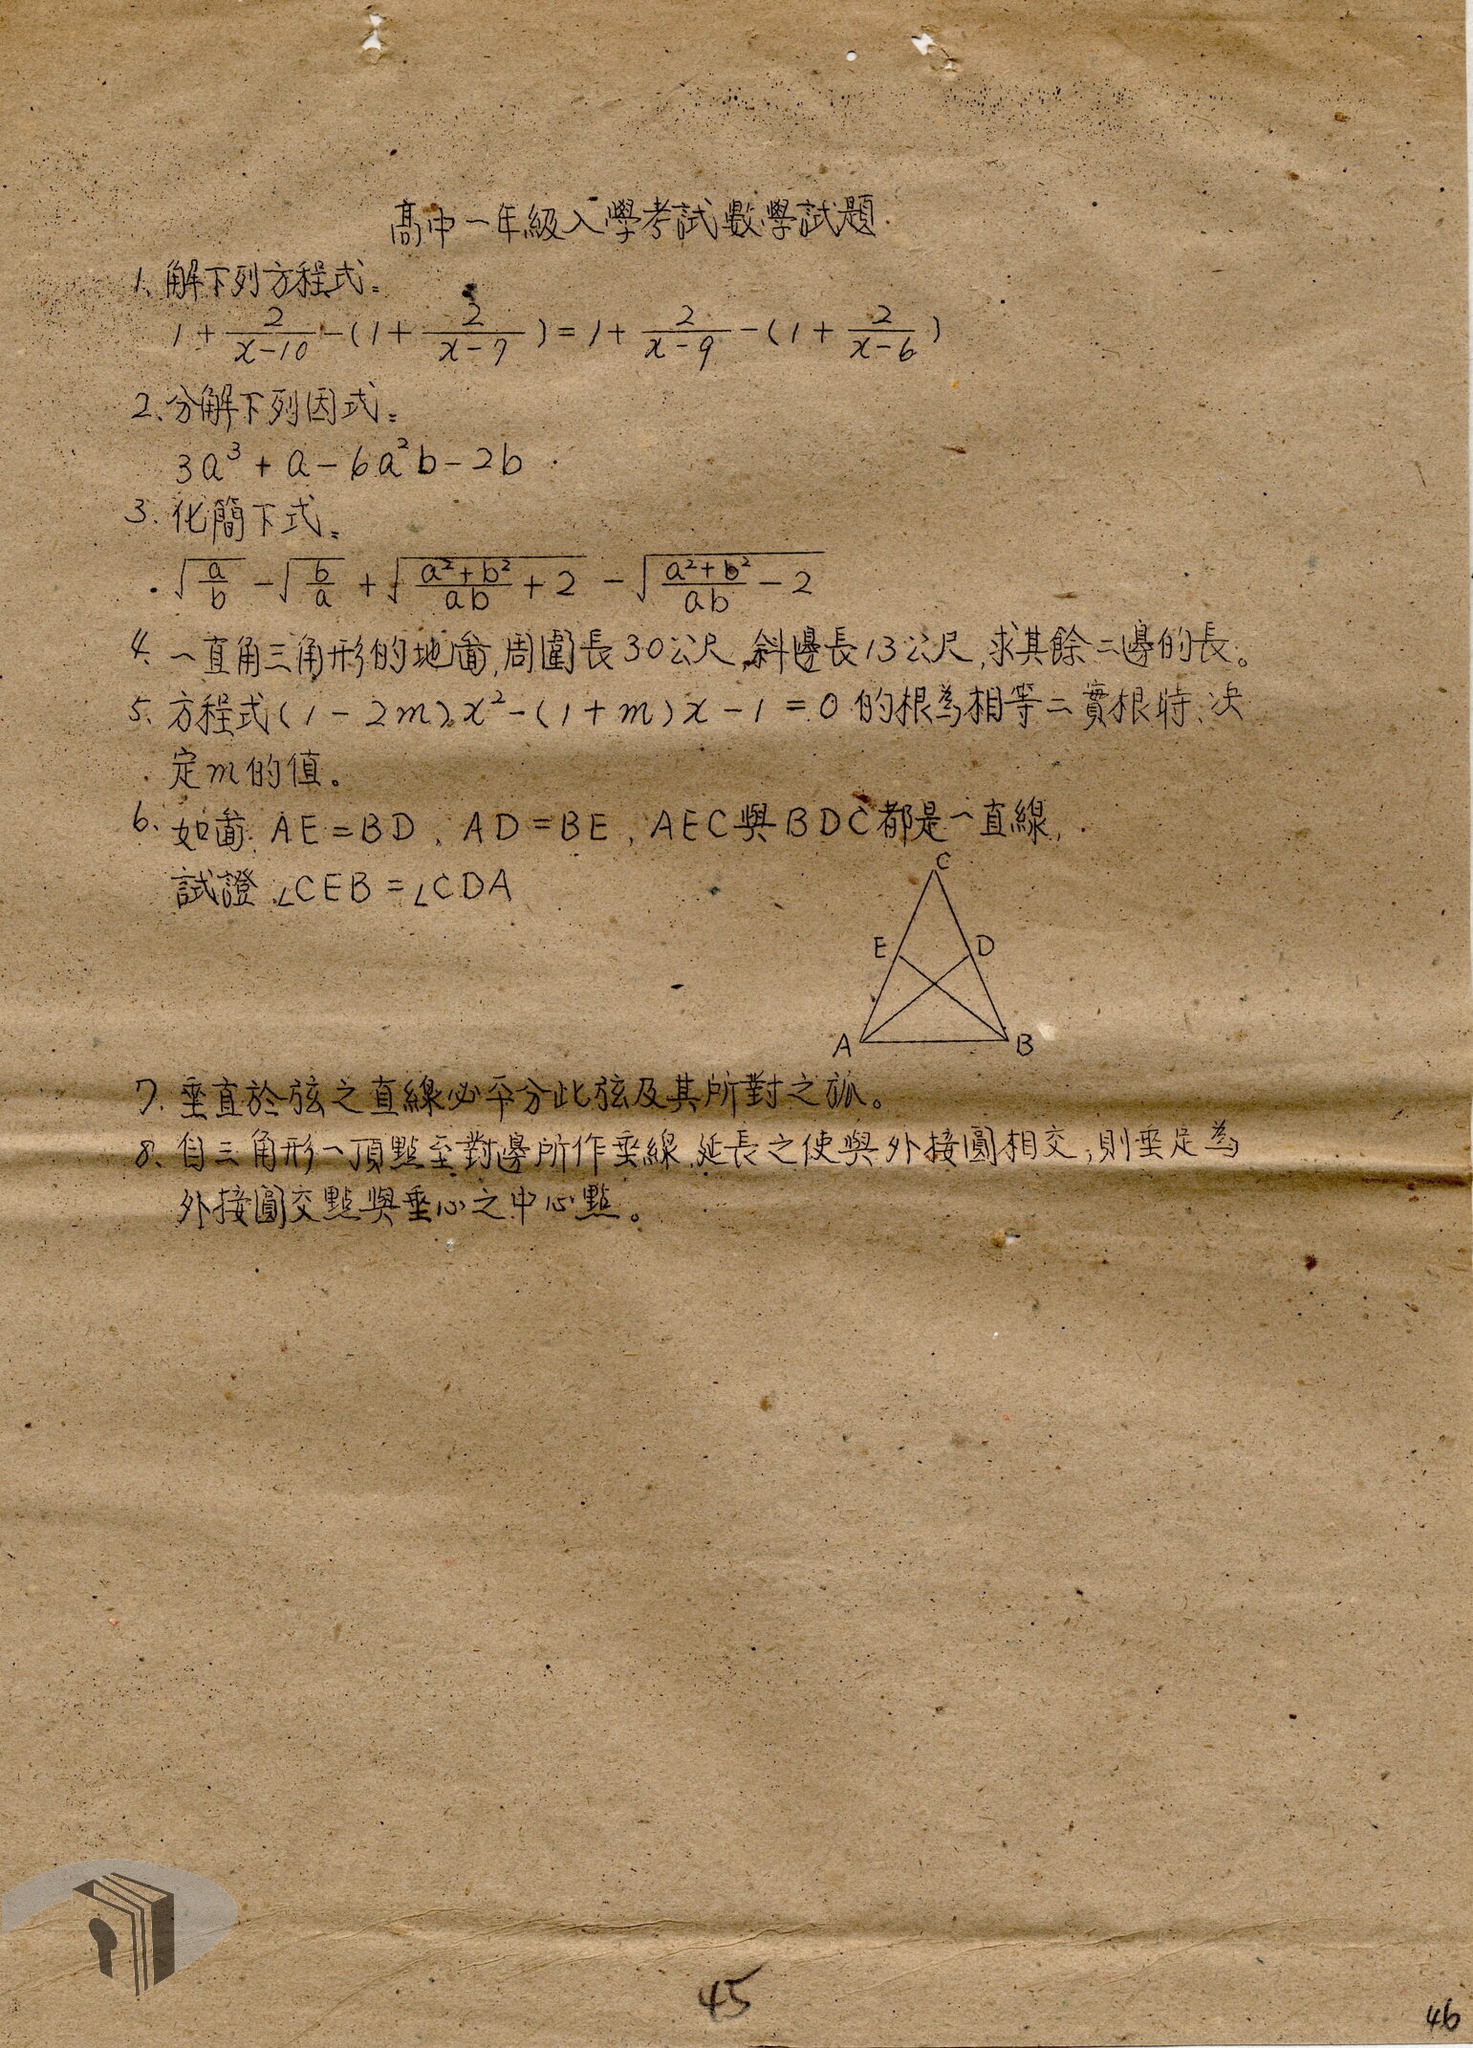 高中一年級入學考試數學試題
1、解下列方程式：
1+2/(x-10)-(1+2/(x-7))=1+2/(x-9)-(1+2/(x-6))
2、分解下列因式：
3a³+a-6a²b-2b
3、化簡下式：
√(a/b)-√(b/a)+√((a²+b²)/ab+2)-√((a²+b²)/ab-2)
4、一直角三角形的地面,周圍長30公尺,斜邊長13公尺,求其餘二邊的長。
5、方程式(1-2m)x²-(1+m)x-1=0的根為相等二實根時、决
定m的值。
6、如啚、AE=BD、AD=BE,AEC與BDC都是一直線,
試證∠CEB=∠CDA
C
E D
A B
7、垂直於弦之直線必平分此弦及其所對之弧。
8、自三角形一頂點至對邊所作垂線、延長之使與外接圓相交,則垂足為
外接圓交點與垂心之中心點。
45
46